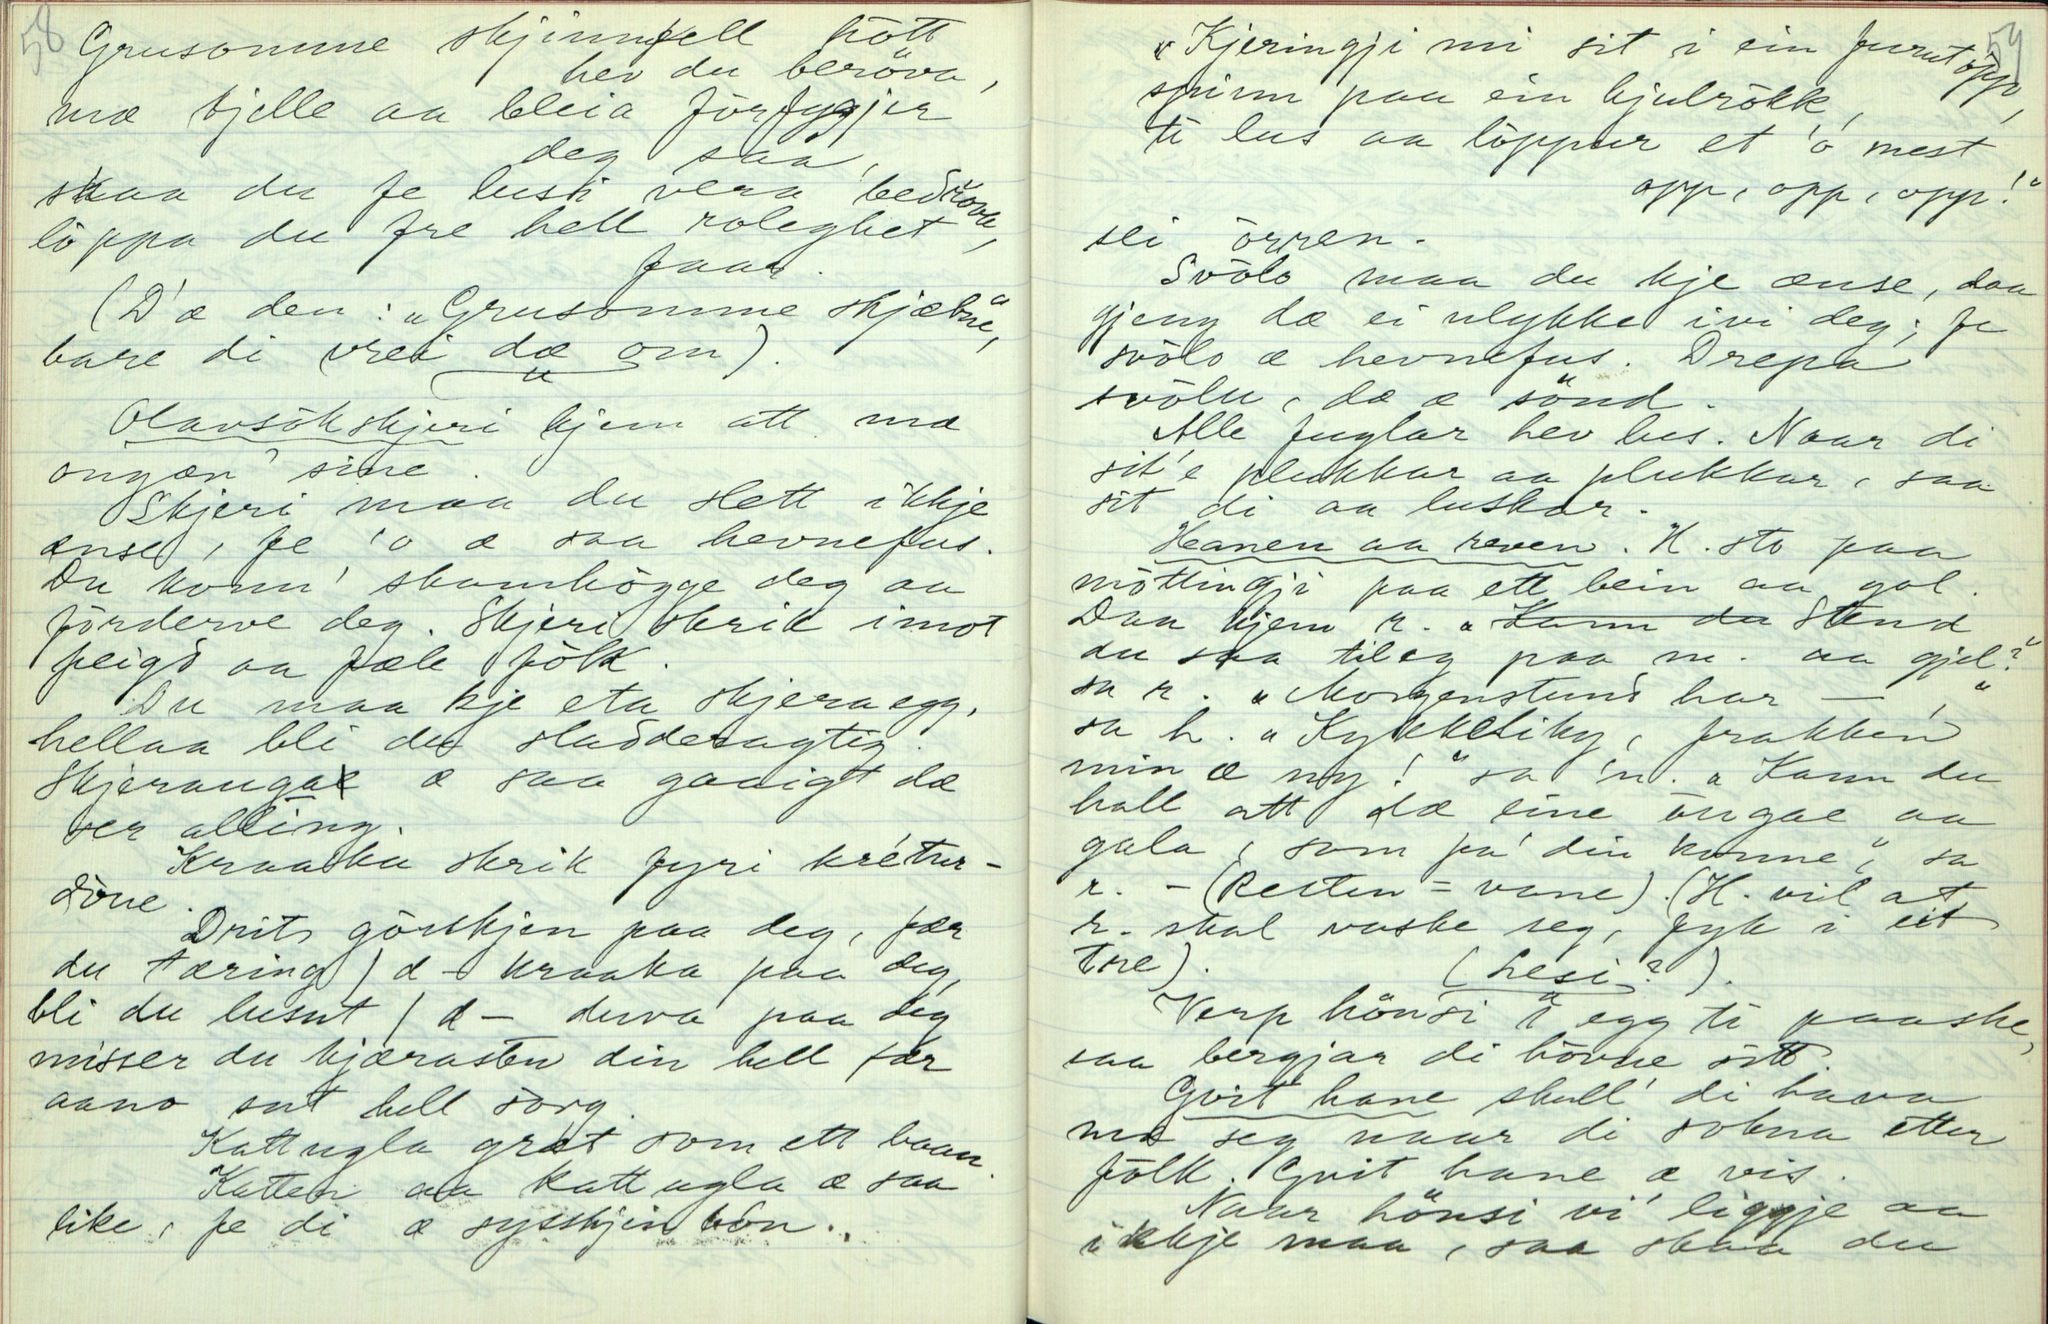 58
Grusomme skjinnfell hött
hev du beröva,
mæ bjelle aa bleia förfygjer
deg saa,
skaa du fe lusi vera bedröva,
löppa du fre hell roleghet
faar.
(D'æ den: „Grusomme skjæbne,"
bare di vrei dæ om).
Olavsökskjeri kjem att mæ
ongæn' sine.
Skjeri maa du slett ikkje
ænse, fe 'o æ saa hevnefus.
Du konn' skamhögge deg aa
förderve deg. Skjeri skrik imot
feigd aa fæle fölk.
Du maa kje eta skjeraegg,
hellaa bli du sladderagtig.
Skjeraugae æ saa gaaigt dæ
ser alting.
Kraaka skrik fyri krétur-
döue.
Drit görskjen paa deg, fær
du tæring / d - kraaka paa deg,
bli du lusut / d - duva paa deg
misser du kjærasten din hell fær
aano sut hell sörg.
Kattugla græt som ett baan.
Katten aa kattugla æ saa
like, fe di æ sysskjinbön.
59
„Kjeringji mi sit i ein furutöpp,
spinn paa ein hjulrökk,
ti lus aa löppur et 'o mest
opp, opp, opp!"
sei örren.
Svölo maa du kje ænse, daa
gjeng dæ ei ulykke ivi deg; fe
svölo æ hevnefus. Drepa
svölu, dæ æ sönd.
Alle fuglar hev lus. Naar di
sit'e plukkar aa plukkar, saa
sit di aa luskar.
Hanen aa reven. H. sto paa
möttingji paa ett bein aa gol.
Daa kjem r. „Kann du Stend
du saa tileg paa m. aa gjel?"
sa r. „Morgenstund har —,"
sa h. „Kykkeliky, frakken
min æ ny!" sa 'n. „Kann du
hall att dæ eine augae aa
gala, som fa' din konne," sa
r. - (Resten = vane). (H. vil at
r. skal vaske seg, fyk i eit
tre). (Lesi?).
Verp hönsi i egg ti paaske,
saa bergjar di hövne sitt.
Gvit hane skull' di hava
mæ seg naar di sokna etter
fölk. Gvit hane æ vis.
Naar hönsi vi' liggje aa
ikkje maa, saa skaa du